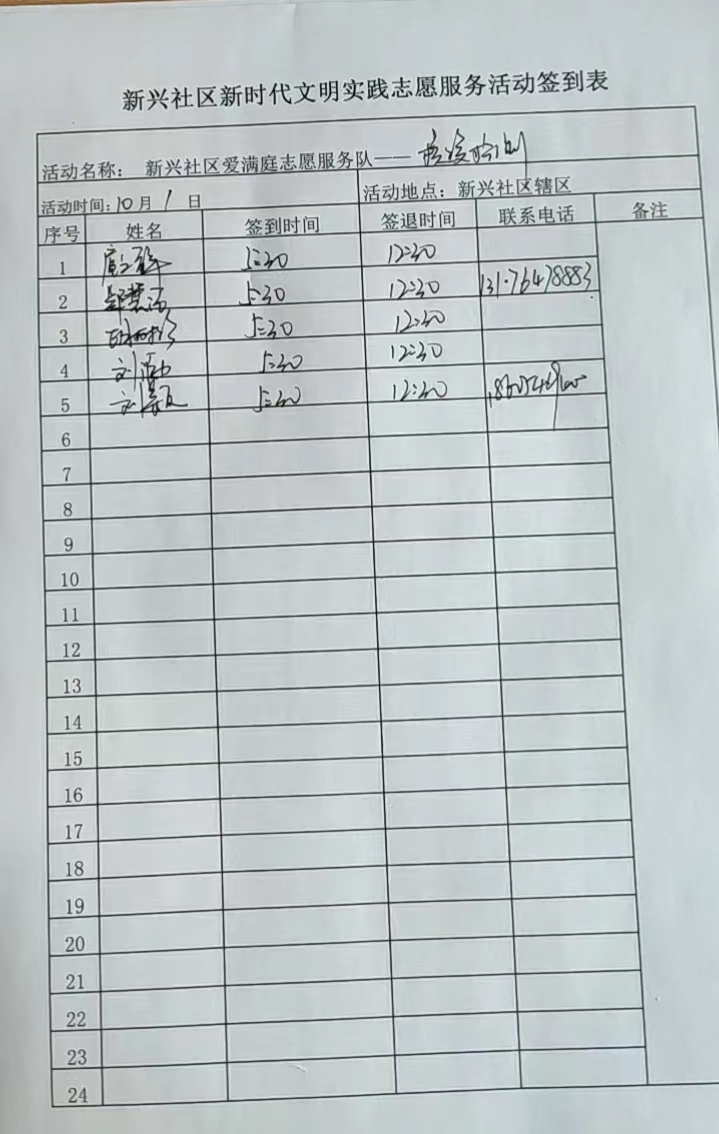 新兴社区新时代文明实践志愿服务活动签到表
活动名称： 新兴社区爱满庭志愿服务队——核酸检测
活动时间：10月1日 活动地点：新兴社区辖区
序号 姓名 签到时间 签退时间 联系电话 备注
1 5:30 12:30
2 5:30 12:30 13176478883
3 5:30 12:30
4 刘 5:30 12:30
5 刘 5:30 12:30
6
7
8
9
10
11
12
13
14
15
16
17
18
19
20
21
22
23
24